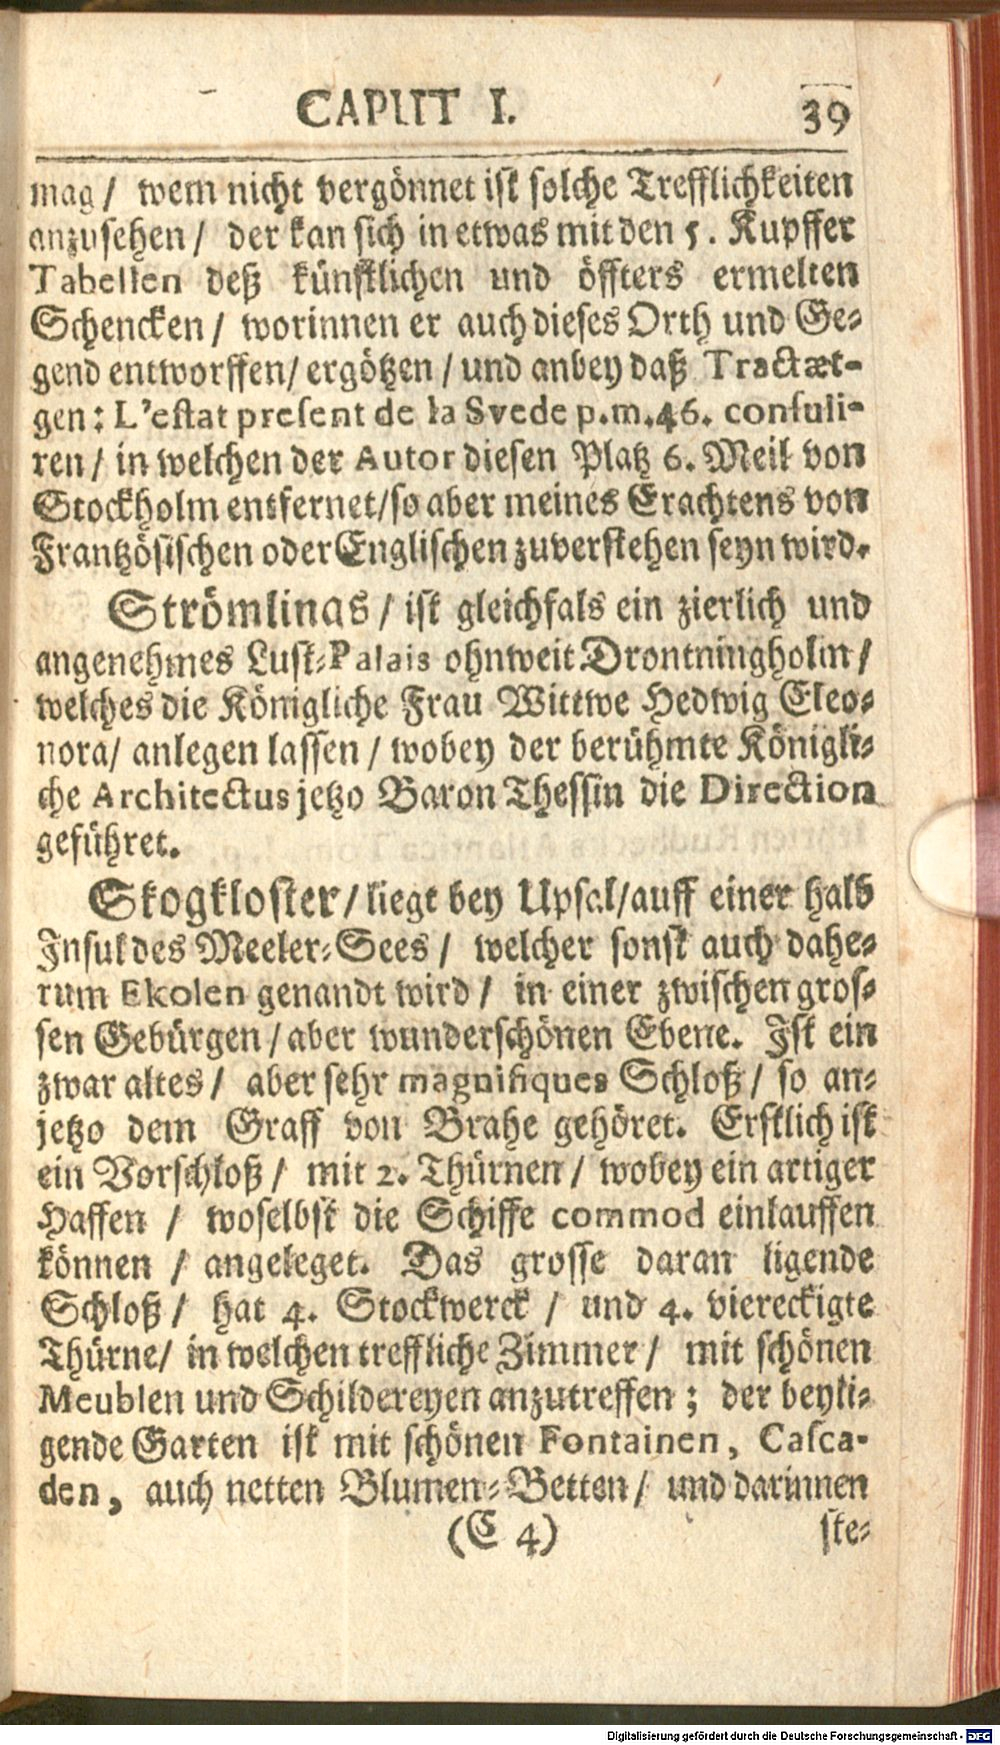 CAPUT I. 39
mag / wem nicht vergönnet ist solche Trefflichkeiten
anzusehen / der kan sich in etwas mit den 5. Kupffer
Tabellen deß künstlichen und öffters ermelten
Schencken / worinnen er auch dieses Orth und Ge-
gend entworffen / ergötzen / und anbey daß Tractæt-
gen: L'estat present de la Svede p.m.46. consuli-
ren / in welchen der Autor diesen Platz 6. Meil von
Stockholm entfernet / so aber meines Erachtens von
Frantzösischen oder Englischen zuverstehen seyn wird.
Strömlings / ist gleichfals ein zierlich und
angenehmes Lust-Palais ohnweit Drontningholm /
welches die Königliche Frau Wittwe Hedwig Eleo-
nora / anlegen lassen / wobey der berühmte Königli-
che Architectus jetzo Baron Thessin die Direction
geführet.
Skogkloster / liegt bey Upsal / auff einer halb
Insul des Meeler-Sees / welcher sonst auch dahe-
rum Ekolen genandt wird / in einer zwischen gros-
sen Gebürgen / aber wunderschönen Ebene. Ist ein
zwar altes / aber sehr magnifiques Schloß / so an-
jetzo dem Graff von Brahe gehöret. Erstlich ist
ein Vorschloß / mit 2. Thürnen / wobey ein artiger
Haffen / woselbst die Schiffe commod einlauffen
können / angeleget. Das grosse daran ligende
Schloß / hat 4. Stockwerck / und 4. viereckigte
Thürne / in welchen treffliche Zimmer / mit schönen
Meublen und Schildereyen anzutreffen ; der beyli-
gende Garten ist mit schönen Fontainen, Casca-
den, auch netten Blumen-Betten / und darinnen
(C 4) ste-
Digitalisierung gefördert durch die Deutsche Forschungsgemeinschaft - DFG